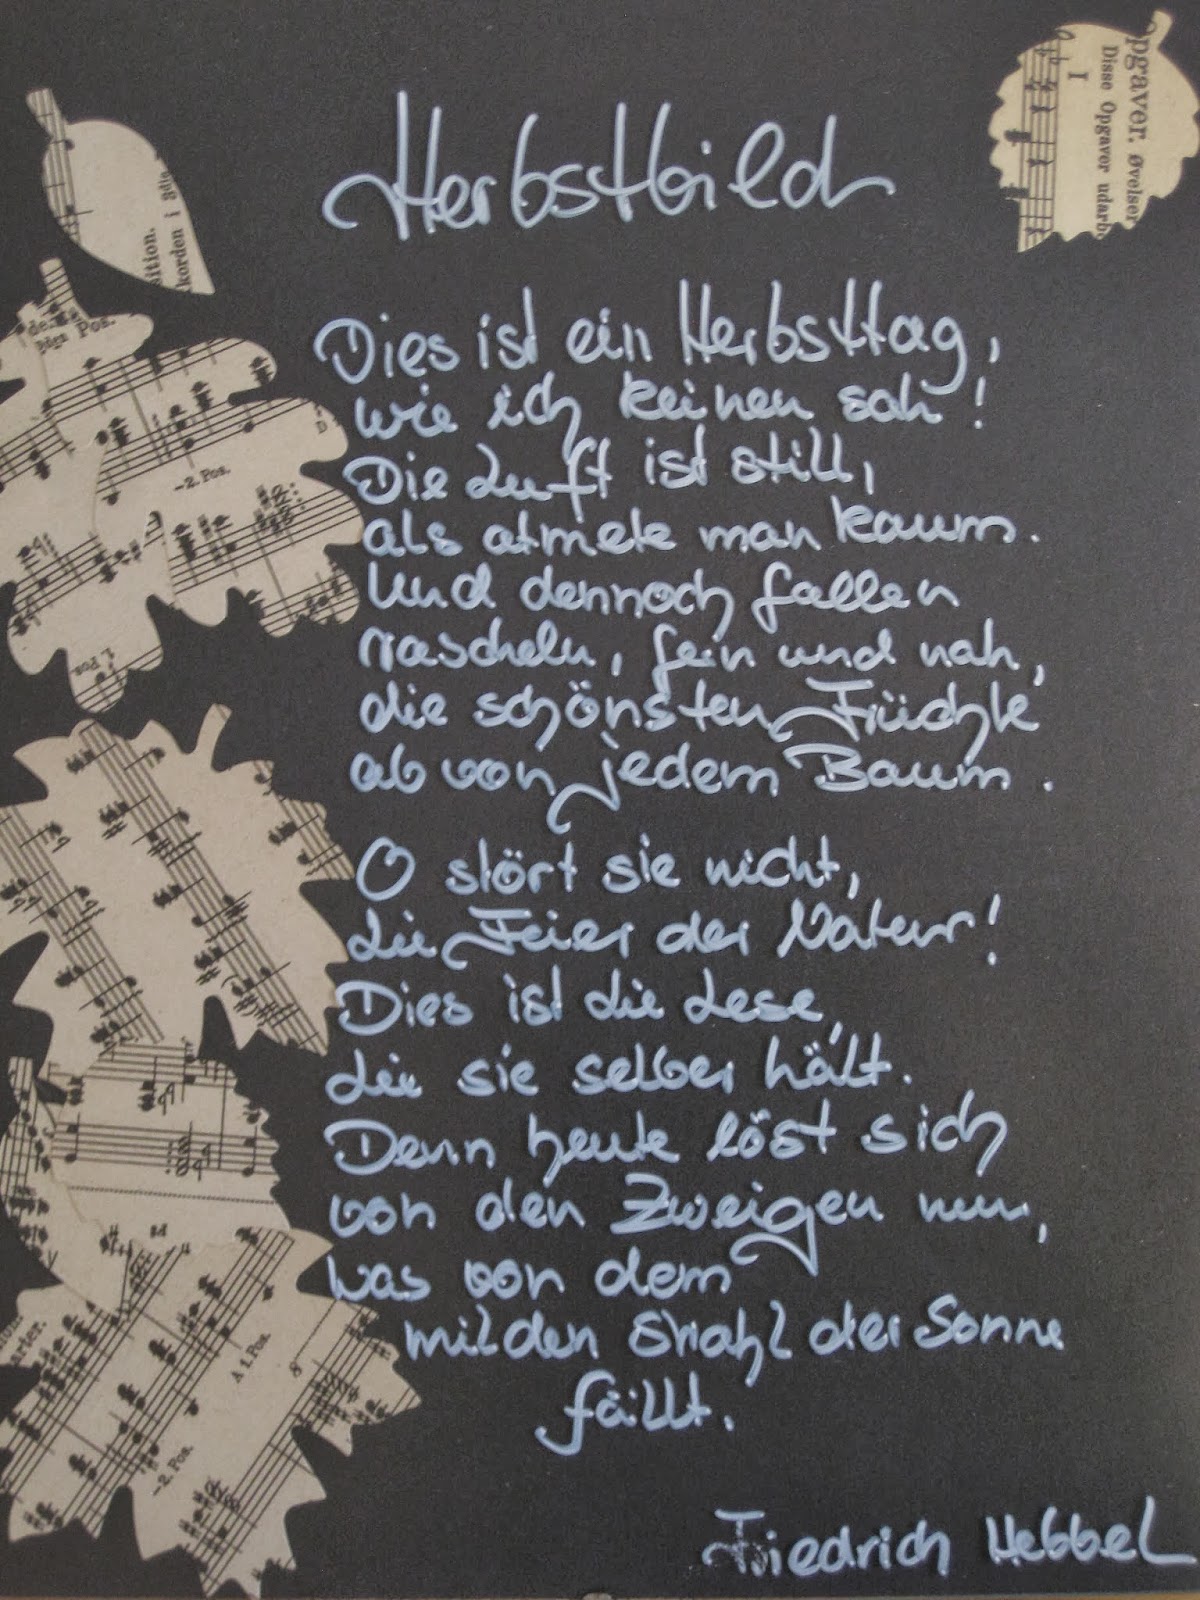 Herbstbild
Dies ist ein Herbsttag,
wie ich keinen sah!
Die Luft ist still,
als atmete man kaum.
Und dennoch fallen
rascheln, fein und nah,
die schönsten Früchte
ab von jedem Baum.
O stört sie nicht,
die Feier der Natur!
Dies ist die Lese,
die sie selber hält.
Denn heute löst sich
von den Zweigen nun,
was von dem
milden Strahl der Sonne
fällt.
Friedrich Hebbel
pgaver. øvelser
Disse Opgaver udarb
I
sition.
korden i 3die
de.
Pos.
D
-2. Pos.
1. Pos
A 1. Pos.
8
-2. Pos.
arter.